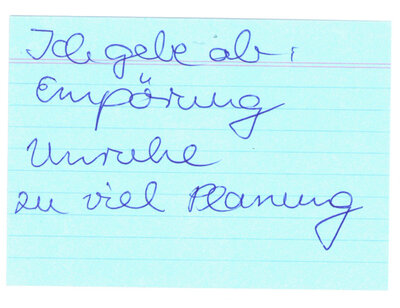 Ich gebe ab:
Empörung
Unruhe
zu viel Planung